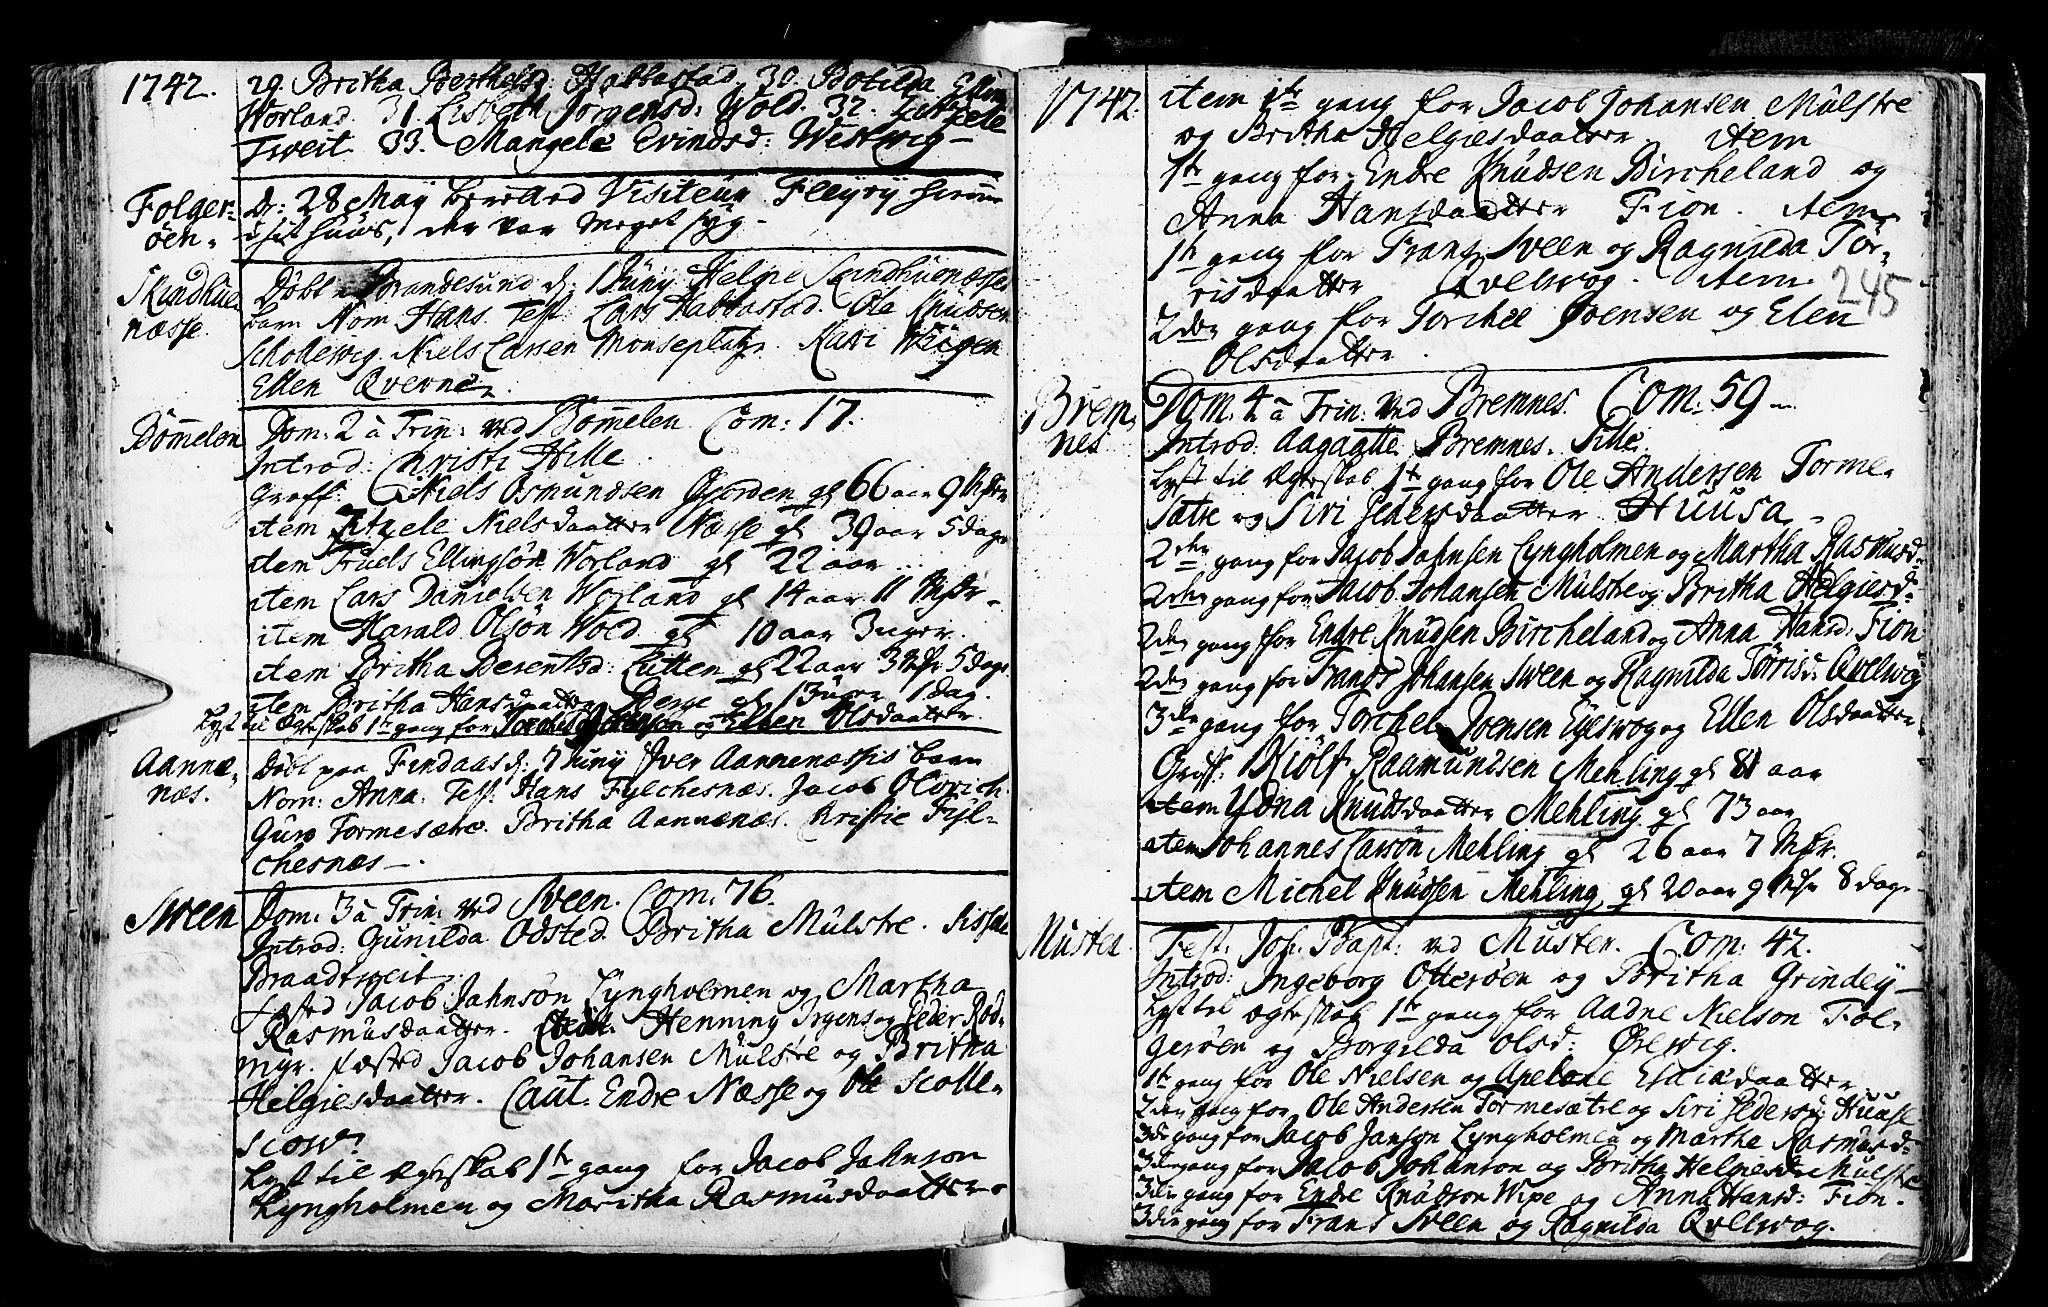 1742.
29. Britha Berthelsd: Habbastad. 30. Botilda Ellin
Worland. 31. Lisbeth Jørgensd: Wold. 32.
Tweit. 33. Mangele Evindsd: Westwig-
Folger-
øen.
D: 28 May beretted Visiteur Fleyry
i sit huus, der var meget syg-
Skindhue
næsse.
Døbt Brandesund d: 1 Juny Helge Skindhuenæsses
barn Nom Hans. Test: Lars Habbastad. Ole Knudsen
Schollewig. Niels Larsen Monseplatz. Kari
Ellen Qverne
Bømelen
Dom: 2 à Trin: ved Bømelen. Com: 17.
Introd: Christi Hille.
Graff: Niels Osmundsen Gjorden gl 66 aar 9
item Nielsdaatter Næsse gl 39 aar 5 dage
item Truels Ellingsøn Worland gl 22 aar
item Lars Danielsen Worland gl 14 aar 11
item Harald Olsøn Wold gl 10 aar 3 uger.
item Britha Berentsd: Lutten gl 22 aar 3 5 dage
item Britha Hansdaatter gl 13 uger 1 dag.
Lyst til Egteskab 1te gang for Torchel Joensen og Ellen Olsdaatter
Aannæ-
næs.
Døbt paa Findaas d: 7 Juny Iver Aannenæssis barn
Nom: Anna. Test: Hans Fylchesnæs. Jacob Olvrich.
Guro Tormesætre. Britha Aannænæs. Kristie Fyl-
chesnæs-.
Sveen
Dom: 3 à Trin: ved Sveen. Com: 76.
Introd: Gunilda Odsted. Britha Mülstre. Sissele
Braadtweit
fæsted Jacob Jahnsøn Lyngholmen og Martha
Rasmusdaatter. Henning Irgens og Peder Rød-
myr. fæsted Jacob Johansen Mülstre og Britha
Helgiesdaatter. Caut. Endre Næsse og Ole Scolle-
scow
Lyst til Egteskab 1te gang for Jacob Jahnsøn
Lyngholmen og Maritha Rasmusdaatter.
1742
item 1te gang for Jacob Johansen Mülstre
og Britha Helgiesdaatter item
1te gang for Endre Knudsen Bircheland og
Anna Hansdaatter Fion. item
1te gang for Frans Sveen og Ragnilda Tør-
risdaatter Qvelwog. item
245
2den gang for Torchel Joensen og Elen
Olsdaatter.
Brem-
nes
Dom: 4 à Trin: ved Bremnes. Com: 59-
Introd: Aagaatte Bremnes. Sille
Lyst til Egteskab 1te gang for Ole Andersen Torme-
sætre og Siri Pedersdaatter Huusa.
2den gang for Jacob Jahnsen Lyngholmen og Martha Rasmusd:
2den gang for Jacob Johansen Mülstre og Britha Helgiesd:
2den gang for Endre Knudsen Bircheland og Anna Hansd: Fion
2den gang for Frands Johansen Sveen og Ragnilda Tørrisd: Qvelwog
3die gang for Torchel Joensen og Ellen Olsdaatter
Graff: Kiølf Raamundsen Mehling gl 81 aar
item Ydna Knudsdaatter Mehling gl 73 aar
item Johannes Larsøn Mehling gl 26 aar 7
item Michel Knudsen Mehling gl 20 aar 9 8 dage
Müster.
Fest: Joh: Bapt: ved Müster. Com: 42.
Introd: Ingeborg Otterøen og Britha Grindey-
Lyst til Egteskab 1te gang for Aadne Nielsøn Fol-
gerøen og Borgilda Olsd: Ørewig.
1te gang for Ole Nielsen og Apelone
2den gang for Ole Andersen Tormesætre og Siri Pedersd: Huuse
3die gang for Jacob Jansøn Lyngholmen og Martha Rasmusd:
3die gang for Jacob Johansøn og Britha Helgiesd: Mülstre
3die gang for Endre Knudsøn Wipe og Anna Hansd: Fion.
3die gang for Frans Sveen og Ragnilda Qvelwog.